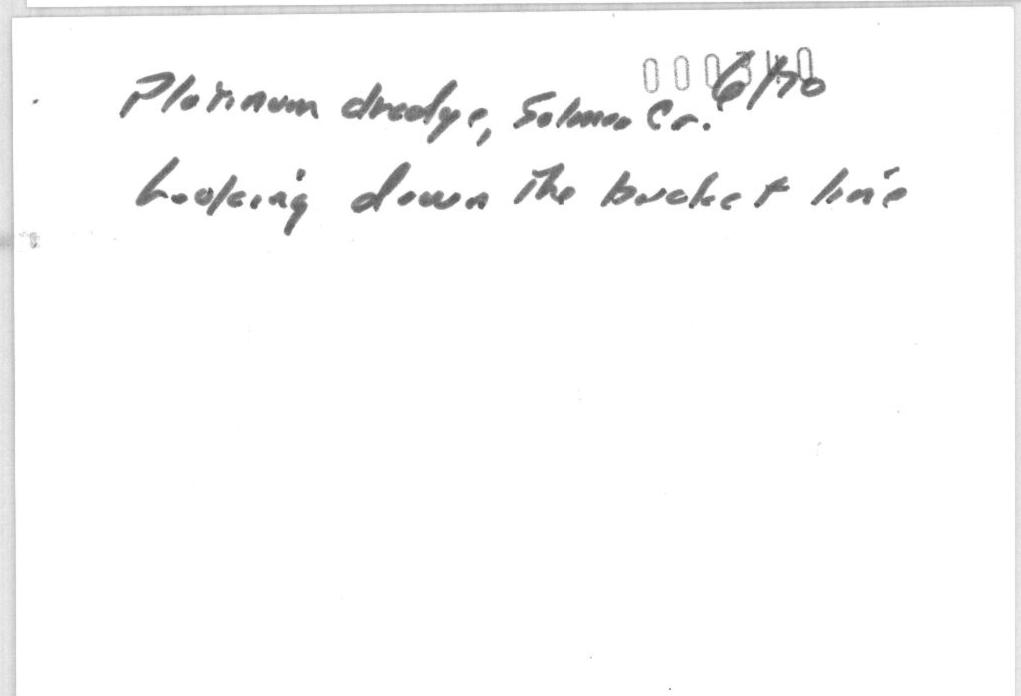 Platinum dredge, Salmon Cr. 6/70
Looking down the bucket line